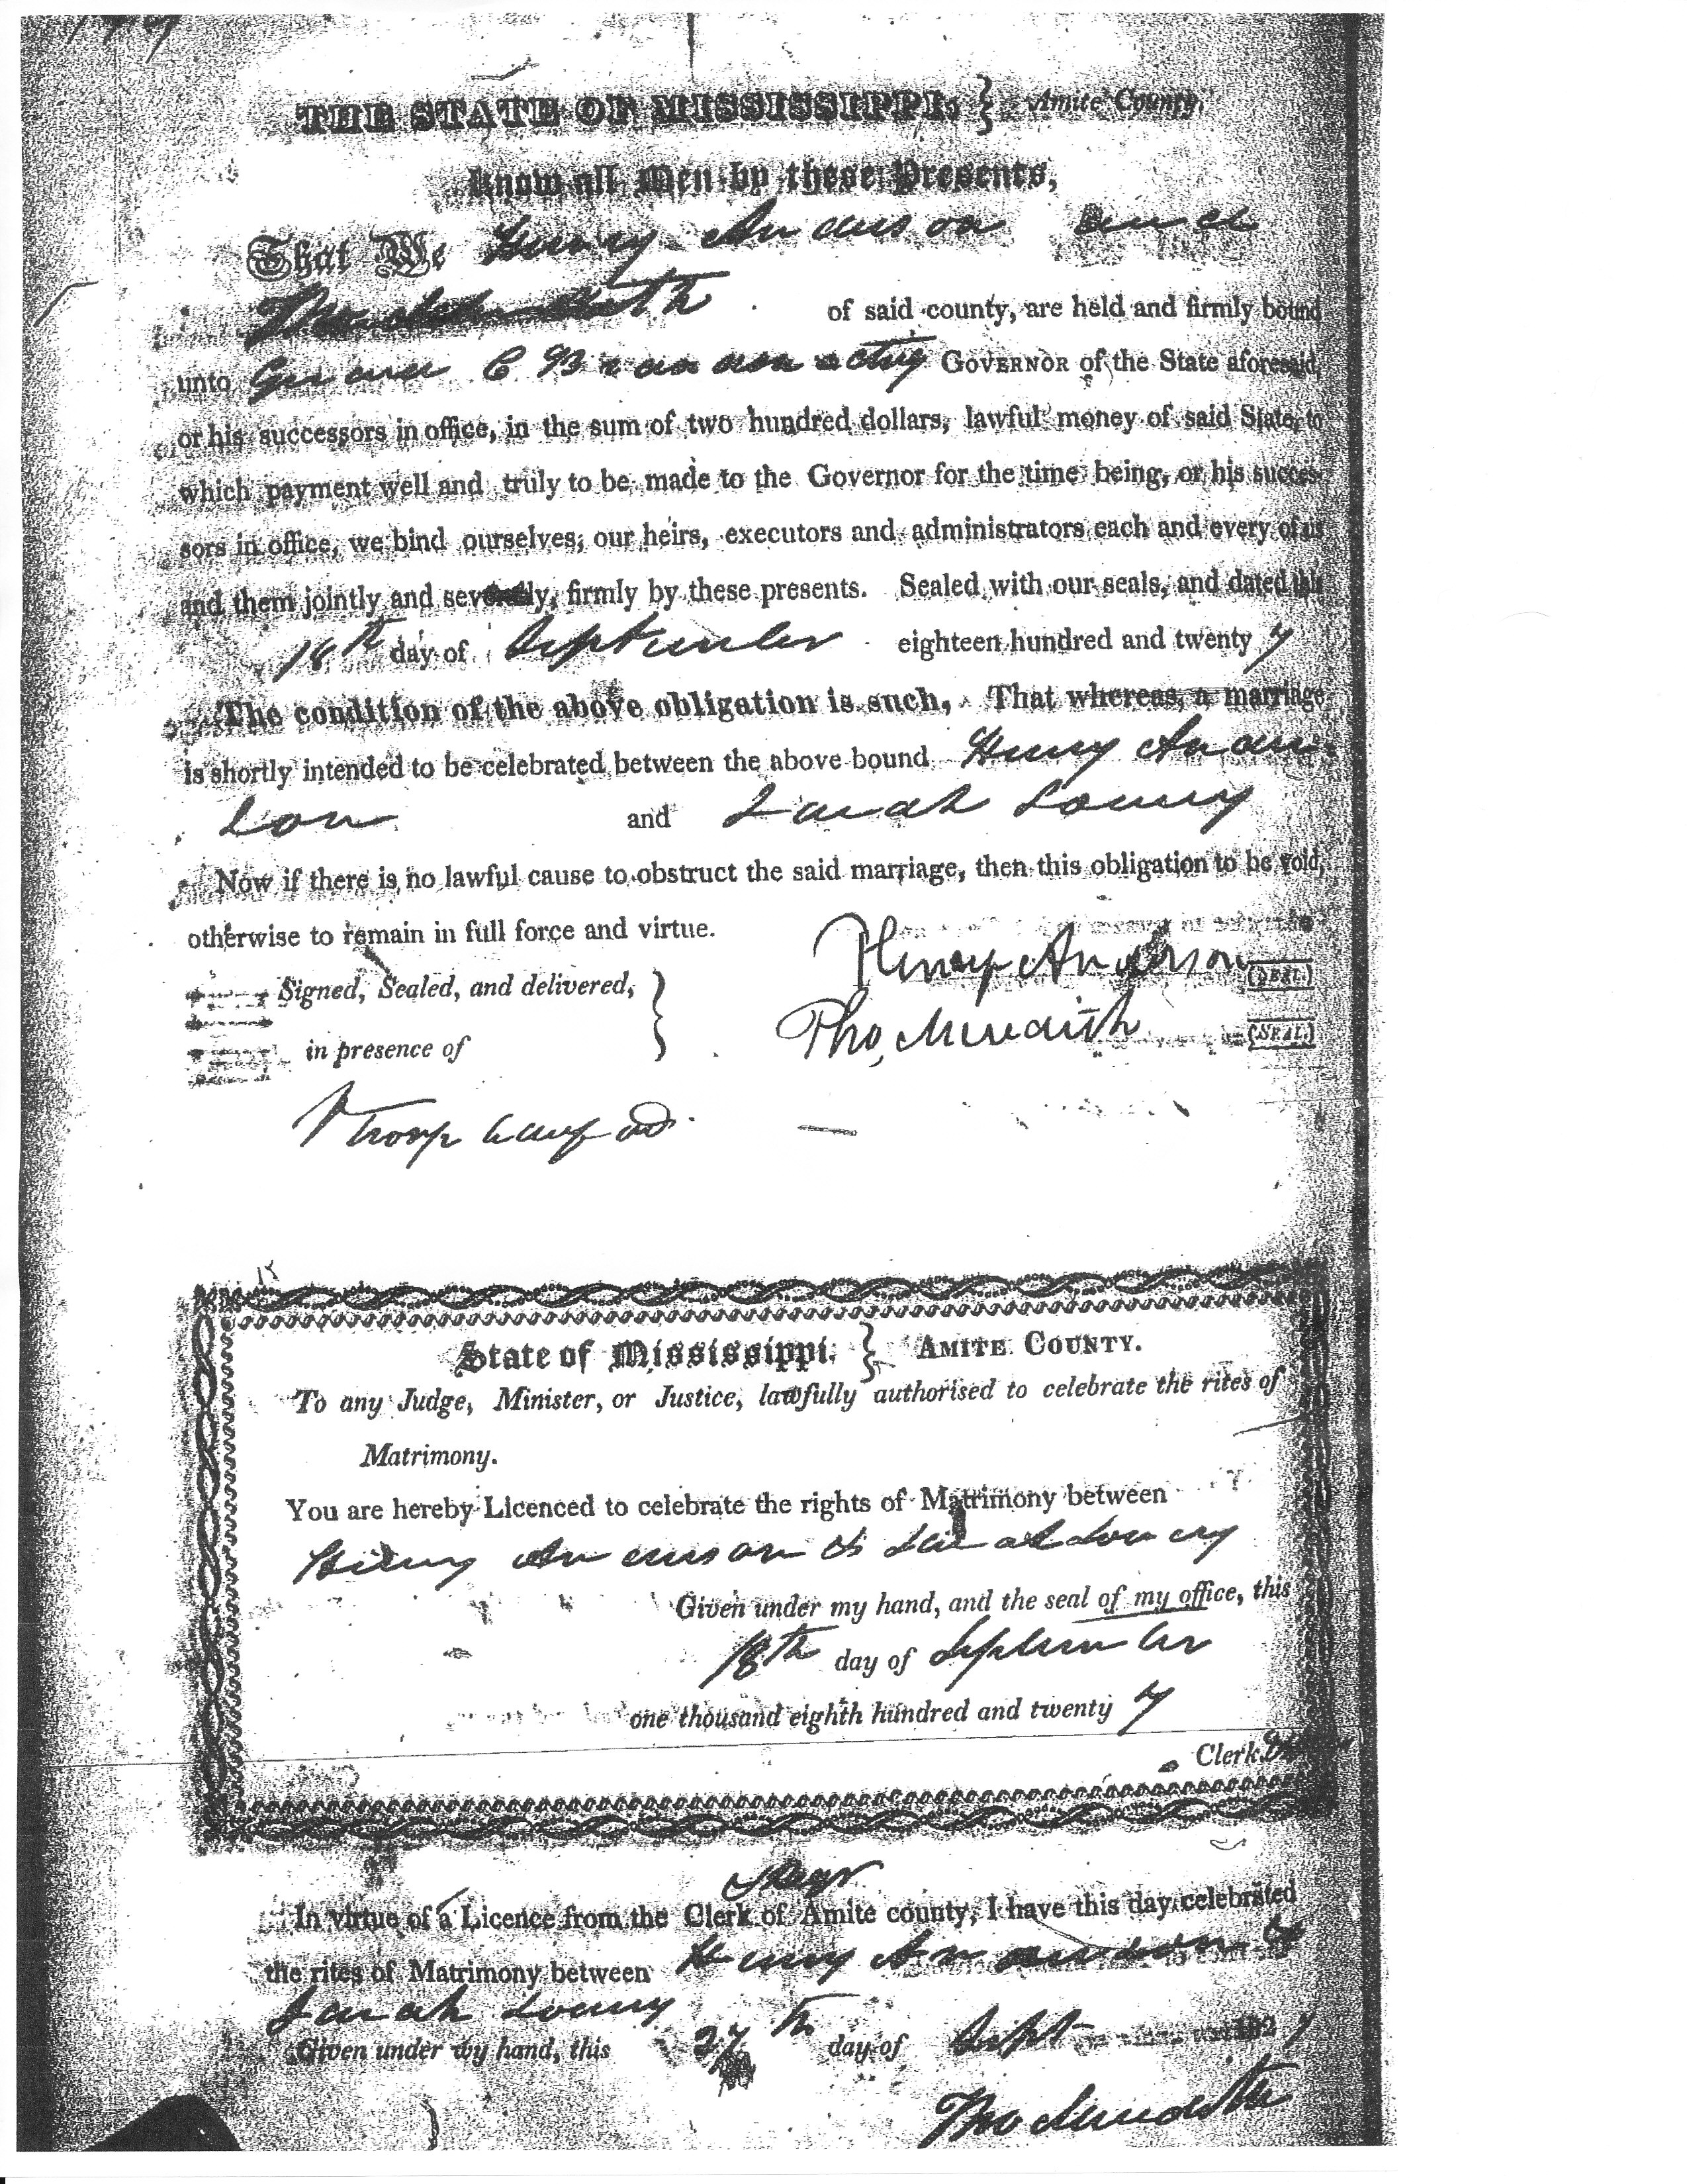 THE STATE OF MISSISSIPPI, } Amite County,
Know all Men by these Presents,
That We Henry Anderson and
Tho Meredith of said county, are held and firmly bound
unto Gerard C Brandon acting GOVERNOR of the State aforesaid,
or his successors in office, in the sum of two hundred dollars, lawful money of said State, to
which payment well and truly to be made to the Governor for the time being, or his succes-
sors in office, we bind ourselves, our heirs, executors and administrators each and every of us
and them jointly and severally, firmly by these presents. Sealed with our seals, and dated this
18th day of September eighteen hundred and twenty 7
The condition of the above obligation is such, That whereas, a marriage
is shortly intended to be celebrated between the above bound Henry Ander
son and Sarah Lowry
Now if there is no lawful cause to obstruct the said marriage, then this obligation to be void,
otherwise to remain in full force and virtue.
Henry Anderson (SEAL.)
Signed, Sealed, and delivered, }
Tho, Meredith (SEAL.)
in presence of
State of Mississippi. } AMITE COUNTY.
To any Judge, Minister, or Justice, lawfully authorised to celebrate the rites of
Matrimony.
You are hereby Licenced to celebrate the rights of Matrimony between
Henry Anderson & Sarah Lowry
Given under my hand, and the seal of my office, this
18th day of September
one thousand eighth hundred and twenty 7
Clerk
Regr
In virtue of a Licence from the Clerk of Amite county, I have this day celebrated
the rites of Matrimony between Henry Anderson &
Sarah Lowry
Given under my hand, this 27th day of Sept 1827
Tho Meredith